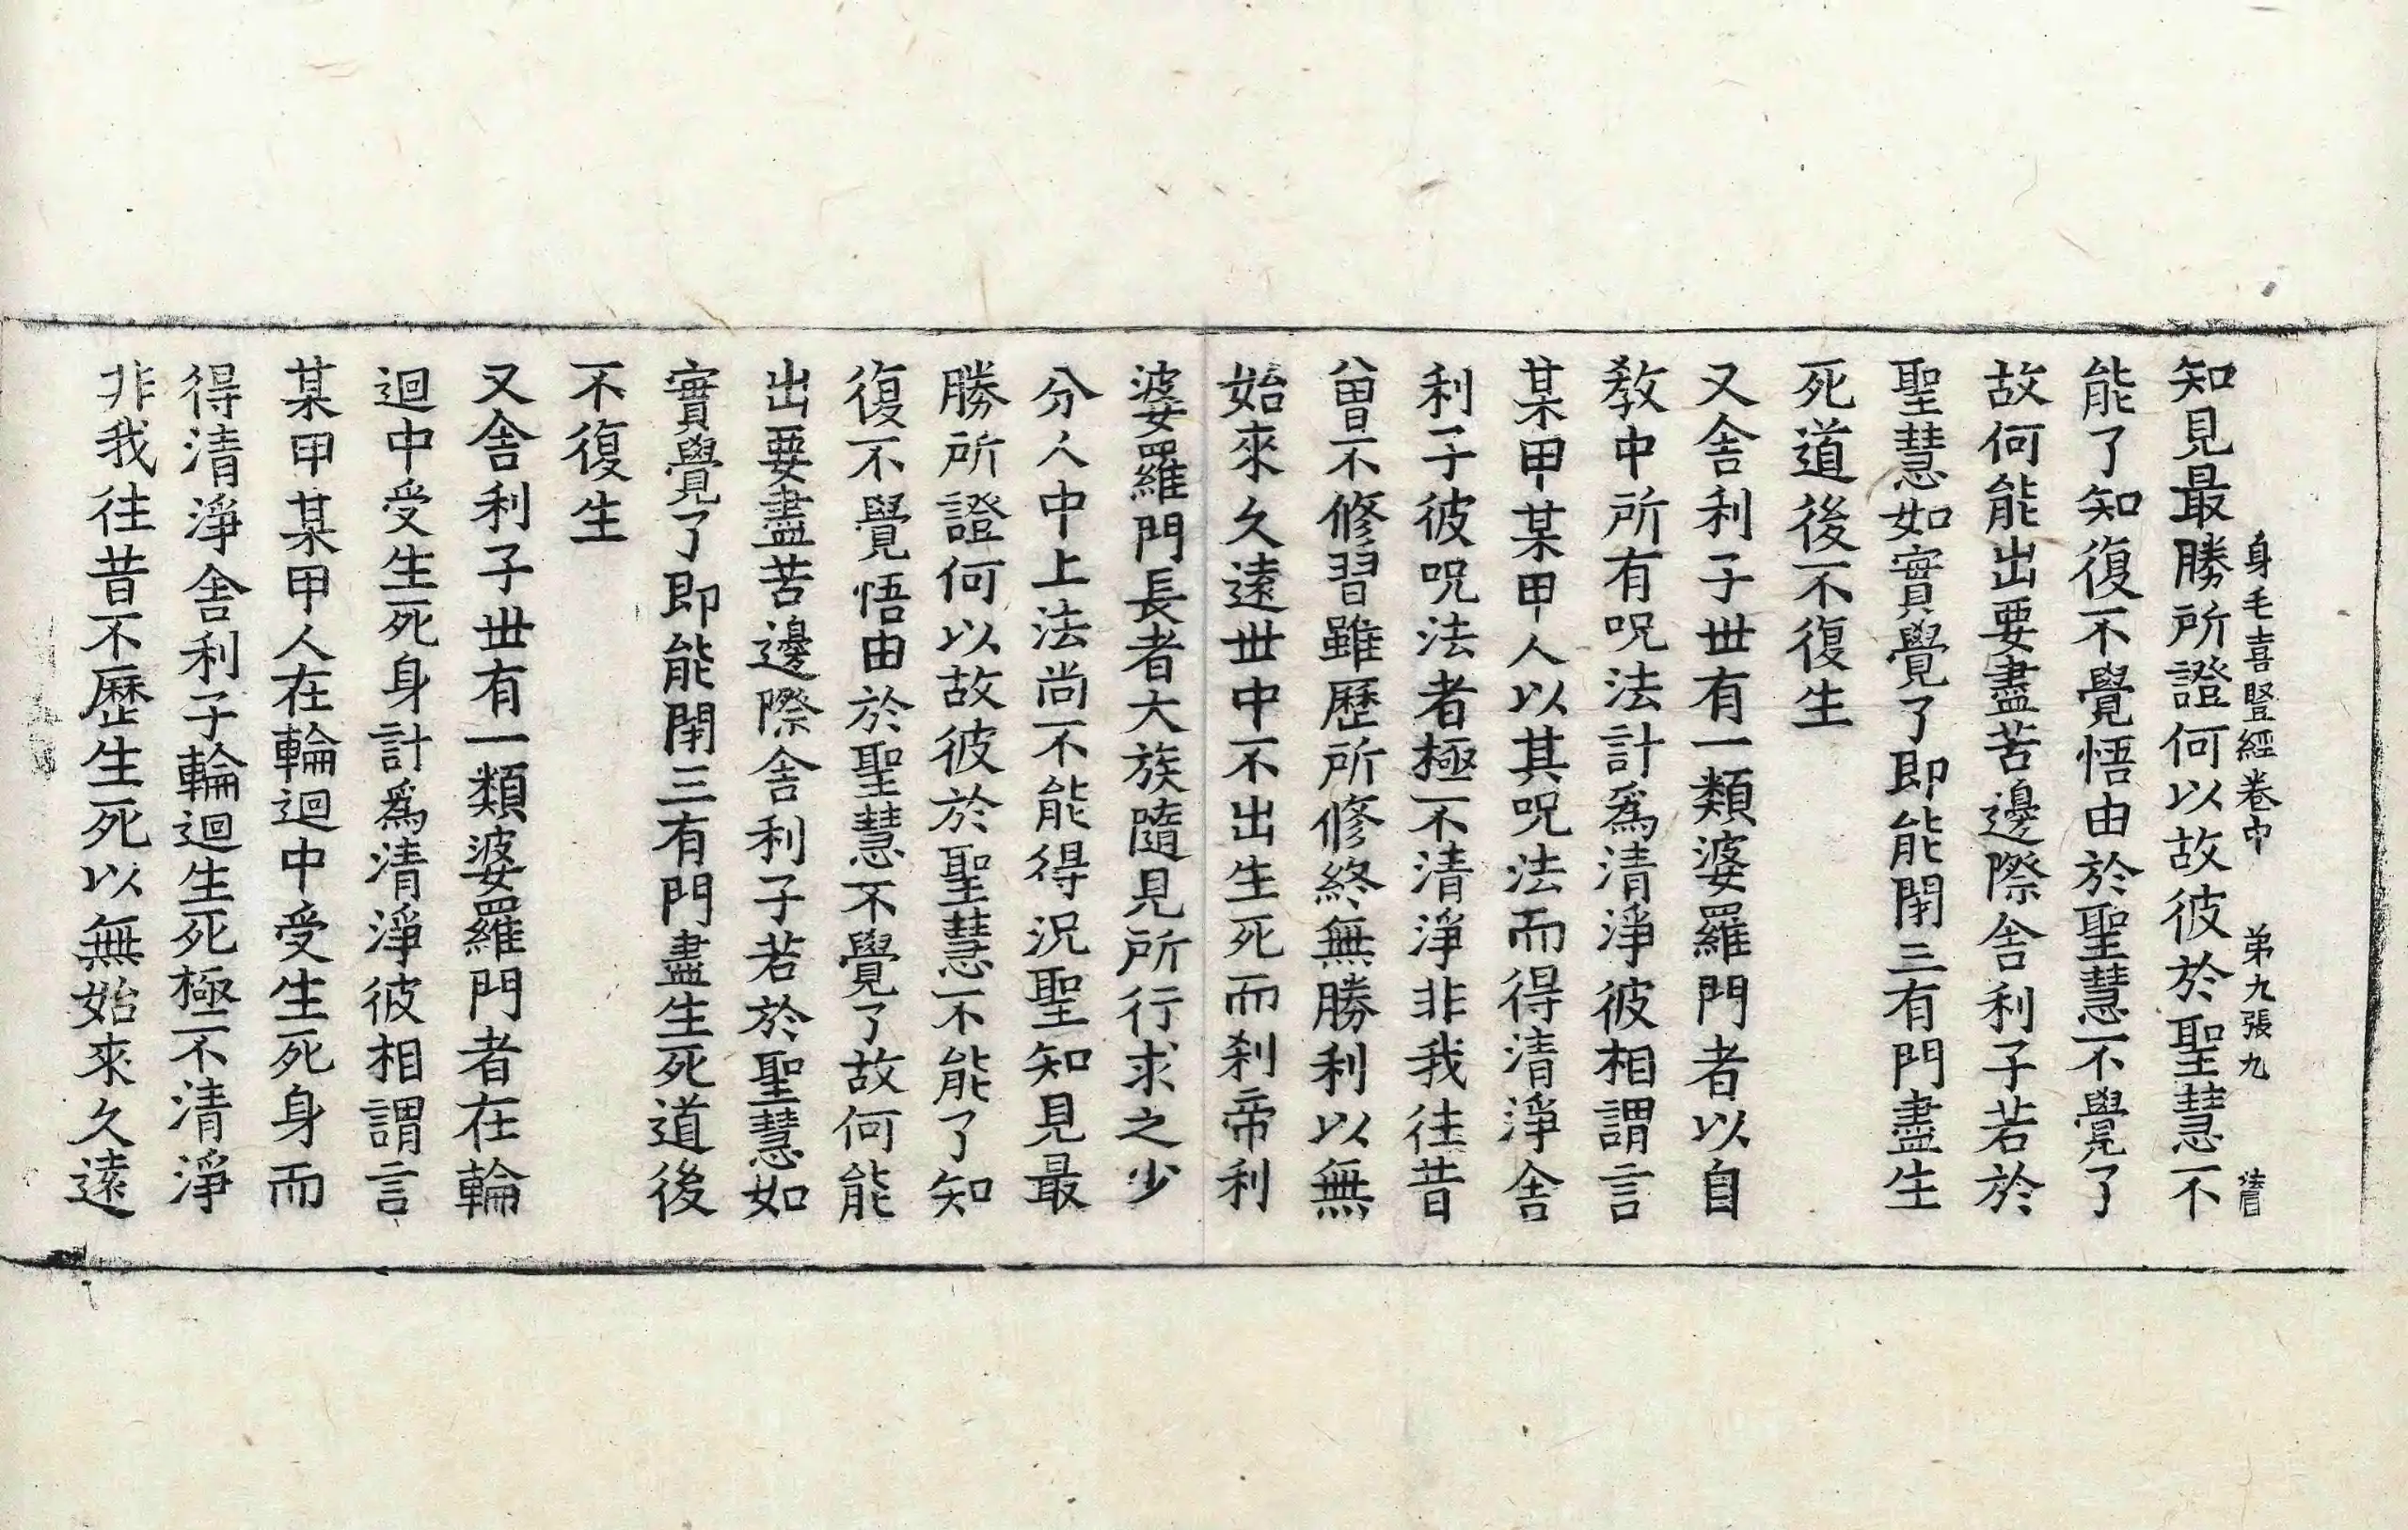 身毛喜豎經卷中 第九張九
知見最勝所證何以故彼於聖慧不
能了知復不覺悟由於聖慧不覺了
故何能出要盡苦邊際舍利子若於
聖慧如實覺了即能閉三有門盡生
死道後不復生
又舍利子世有一類婆羅門者以自
教中所有呪法計爲清淨彼相謂言
某甲某甲人以其呪法而得清淨舍
利子彼呪法者極不清淨非我往昔
曾不修習雖歷所修終無勝利以無
始來久遠世中不出生死而刹帝利
婆羅門長者大族隨見所行求之少
分人中上法尚不能得況聖知見最
勝所證何以故彼於聖慧不能了知
復不覺悟由於聖慧不覺了故何能
出要盡苦邊際舍利子若於聖慧如
實覺了即能閉三有門盡生死道後
不復生
又舍利子世有一類婆羅門者在輪
迴中受生死身計爲清淨彼相謂言
某甲某甲人在輪迴中受生死身而
得清淨舍利子輪迴生死極不清淨
非我往昔不歷生死以無始來久遠